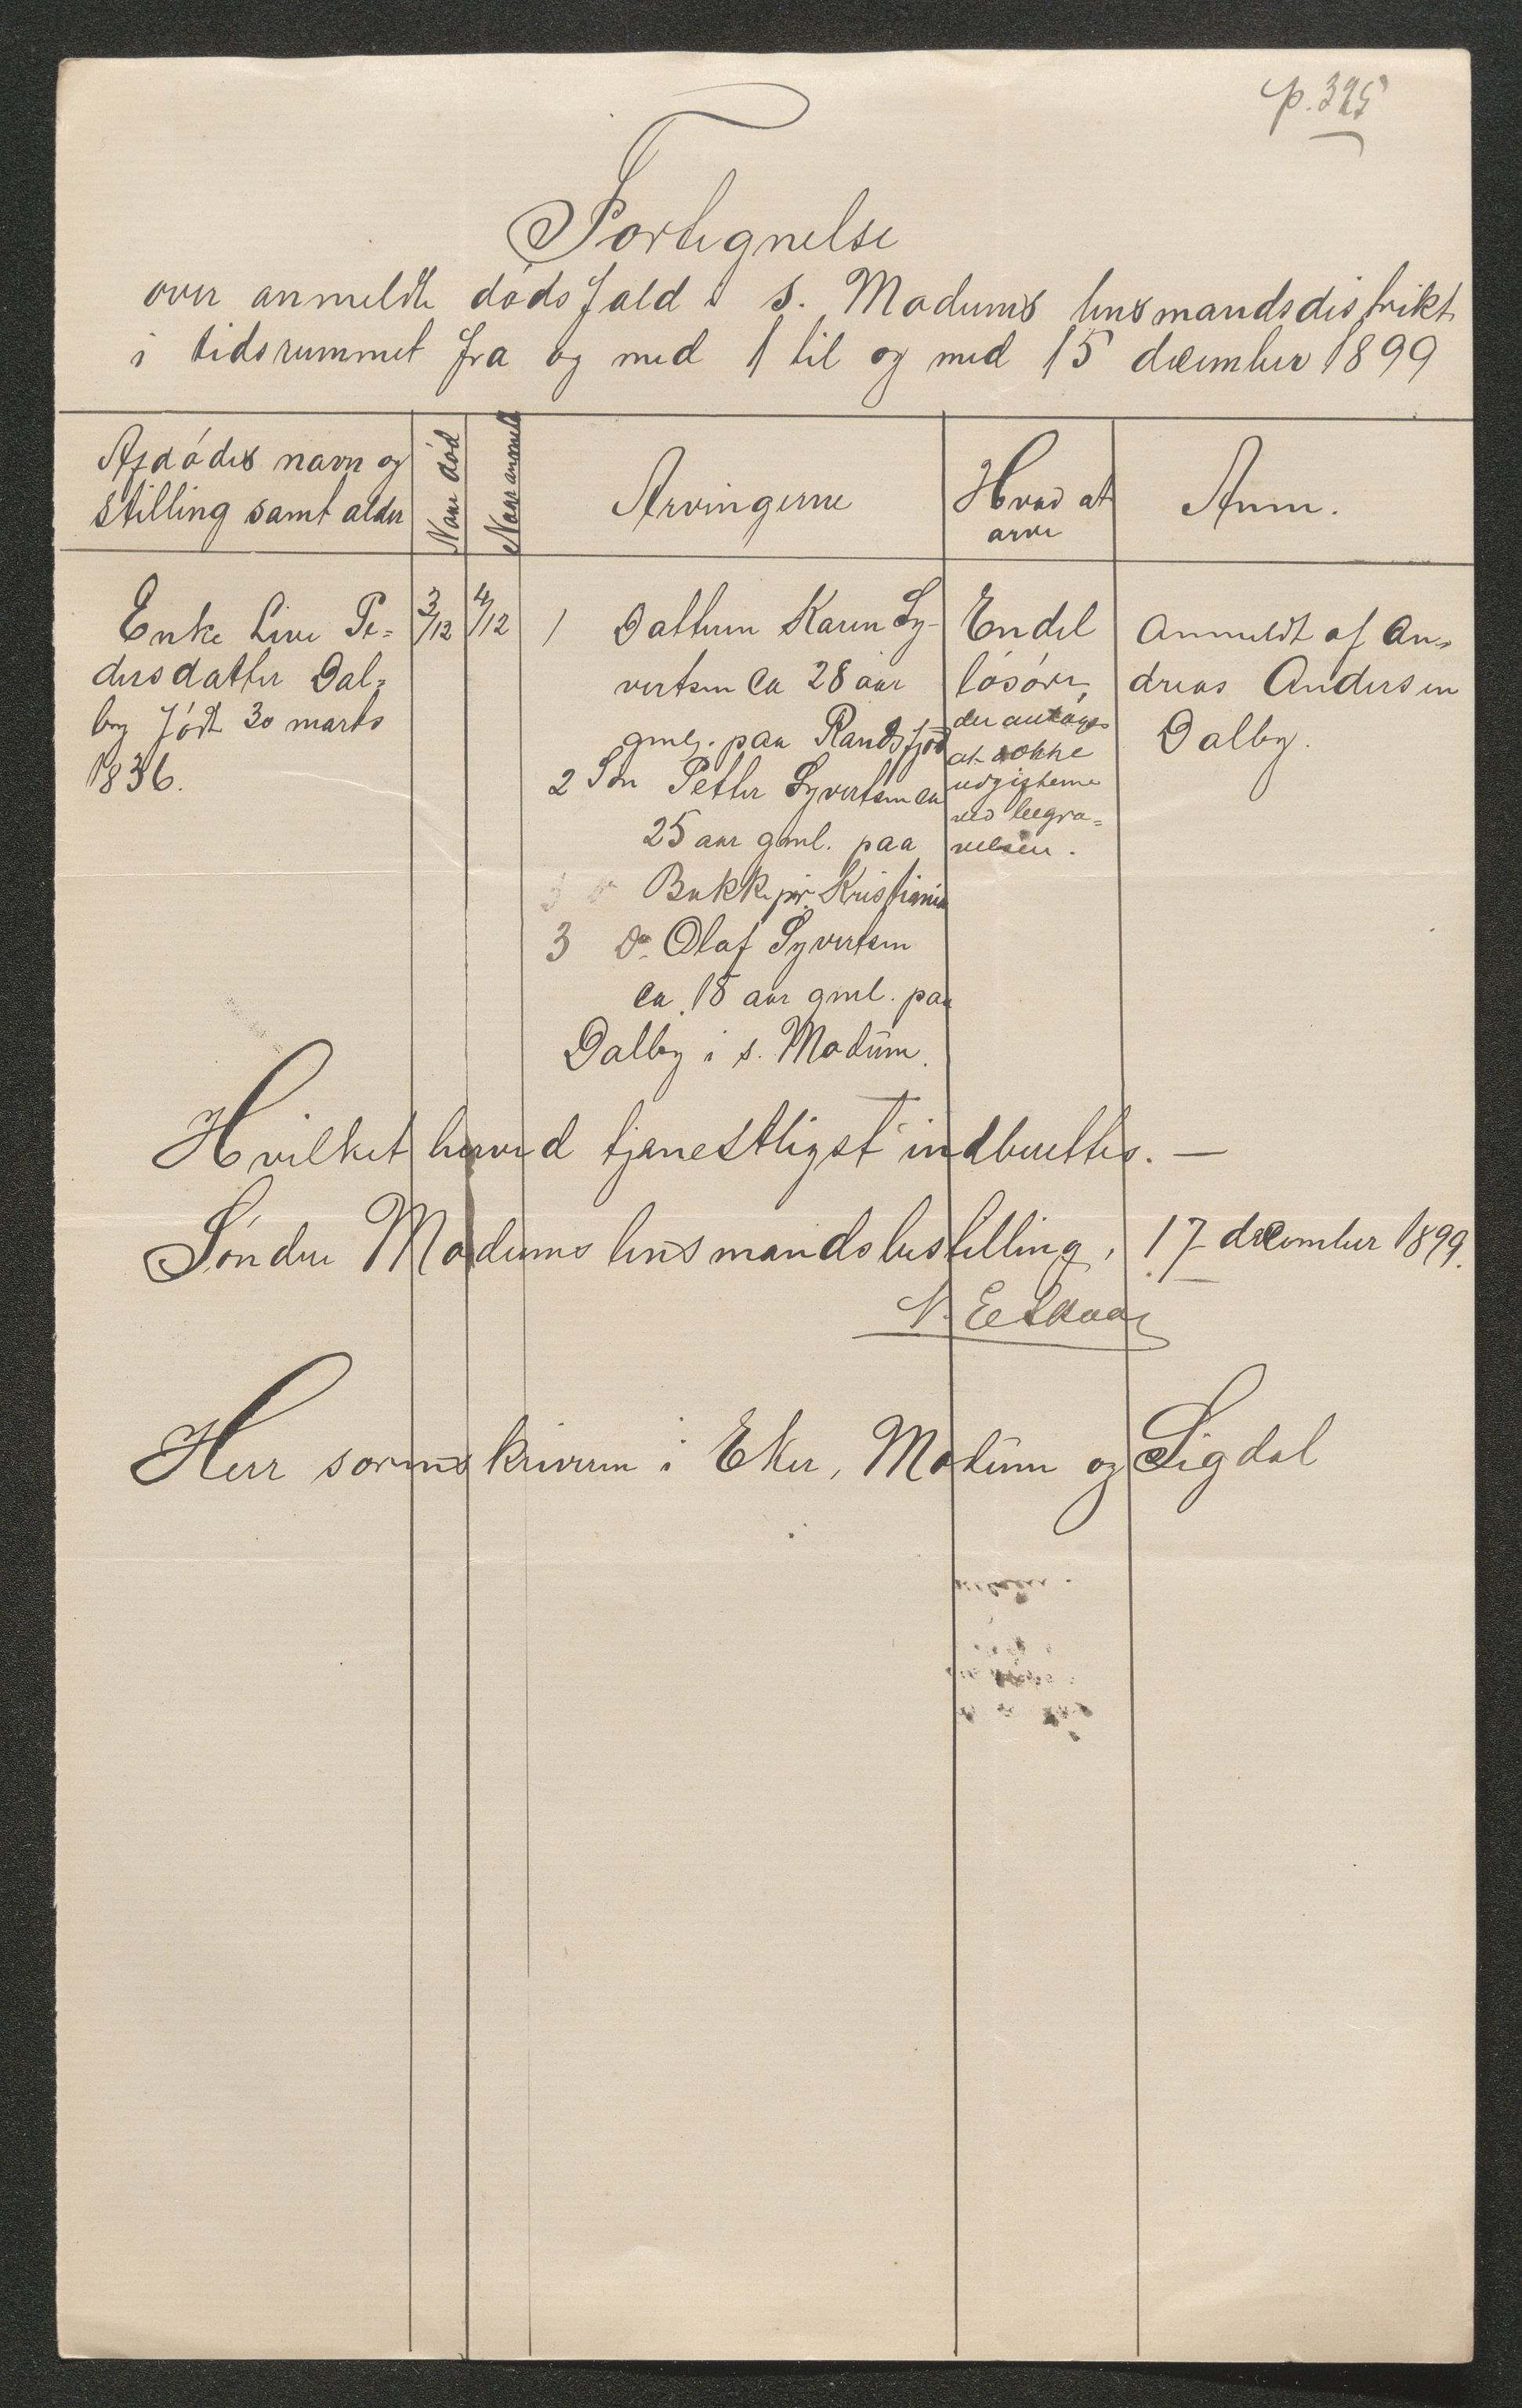 p. 325
Fortegnelse
over anmeldte dødsfald i s. Modums lensmandsdistrikt
i tidsrummet fra og med 1 til og med 15 december 1899
Afdødes navn og
stilling samt alder
Naar død
Naar anmeldt
Arvingerne
Hvad at
arve
Anm.
Enke Live Pe=
dersdatter Dal=
by født 30 marts
1836.
3/12
4/12
1 Datteren Karen Sy-
vertsen ca 28 aar
gml. paa Randsfjord
2 Søn Petter Syvertsen ca
25 aar gml. paa
Bakke pr. Kristiania
3 Do Olaf Syvertsen
ca. 18 aar gml. paa
Dalby i s. Modum.
Endel
løsøre,
der antages
at dække
udgifterne
ved begra=
velsen.
Anmeldt af An=
dreas Andersen
Dalby.
Hvilket herved tjenestligst indberettes. —
Søndre Modums lensmandsbestilling, 17 december 1899.
Herr sorenskriveren i Eker, Modum og Sigdal